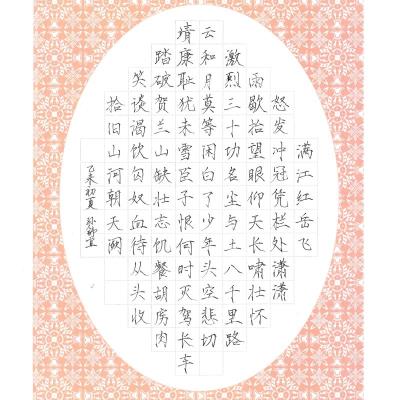 满江红岳飞
怒发冲冠凭栏处潇潇
雨歇拾望眼仰天长啸壮怀
激烈三十功名尘与土八千里路
云和月莫等闲白了少年头空悲切
靖康耻犹未雪臣子恨何时灭驾长车
踏破贺兰山缺壮志饥餐胡房肉
笑谈渴饮匈奴血待从头收
拾旧山河朝天阙
乙未初夏 孙